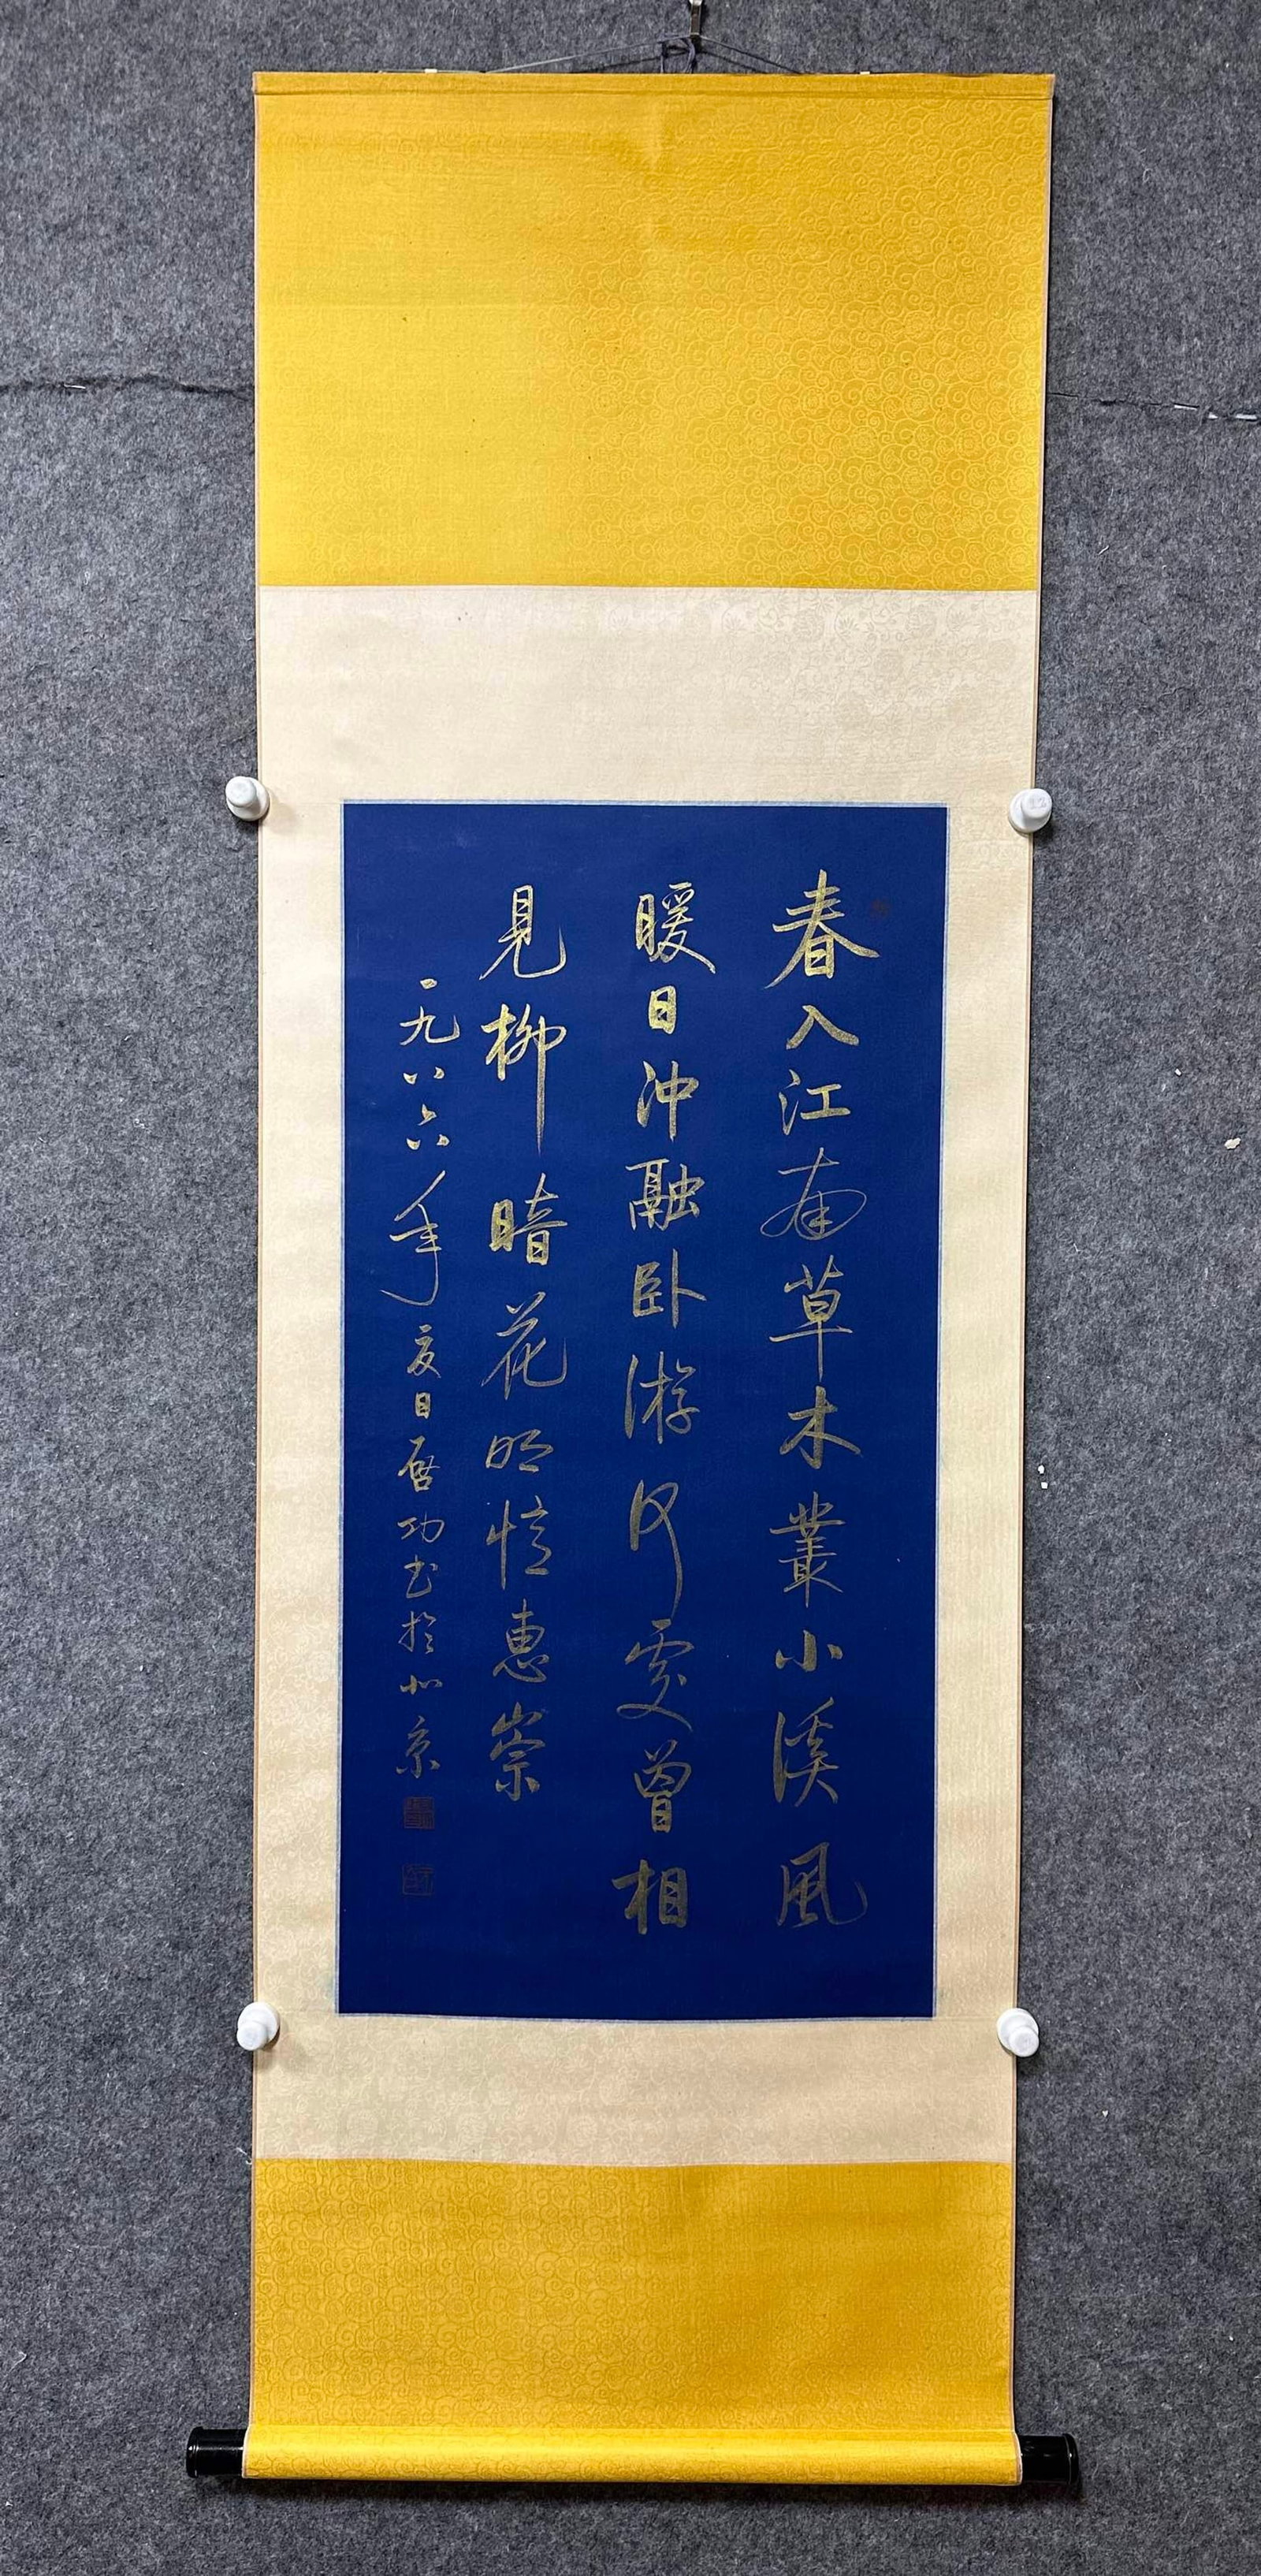 春入江南草木叢小溪風
暖日沖融卧游何處曾相
見柳暗花明憶惠崇
一九八六年夏日启功书於北京